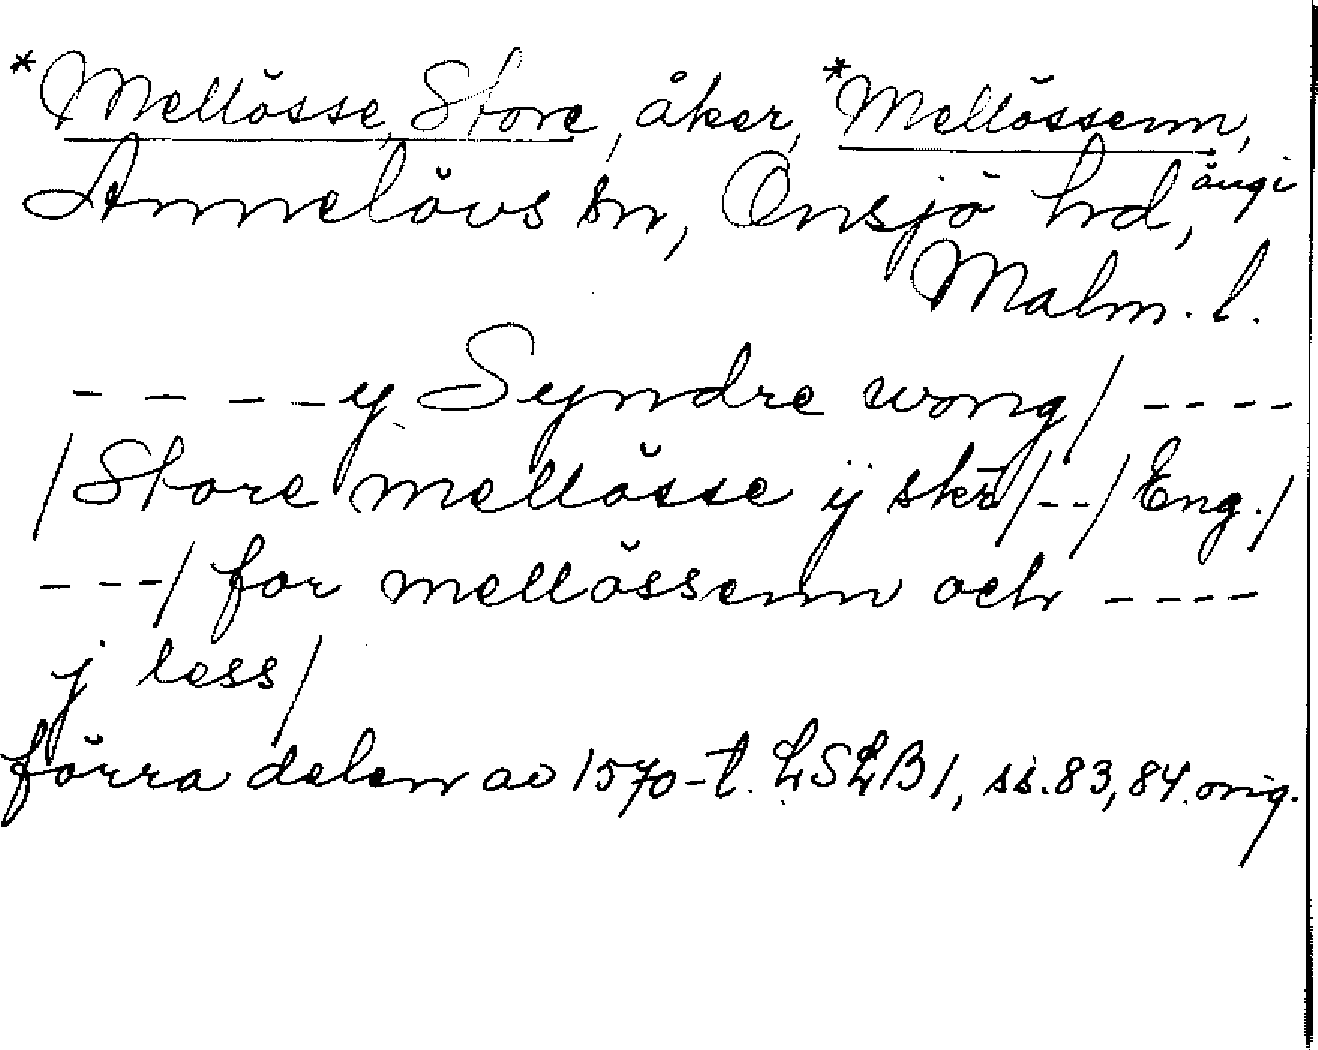 *Mellösse, Store, åker, *Mellössenn,
äng i
Annelövs sn, Onsjö hd,
Malm. l.
- - - - y Syndre wong / - - - -
/ Store mellösse ij skr̄ / - - / Eng. /
- - - / for mellössenn och - - - -
j less /
förra delen av 1570-t. LSLB 1, ss. 83, 84. orig.